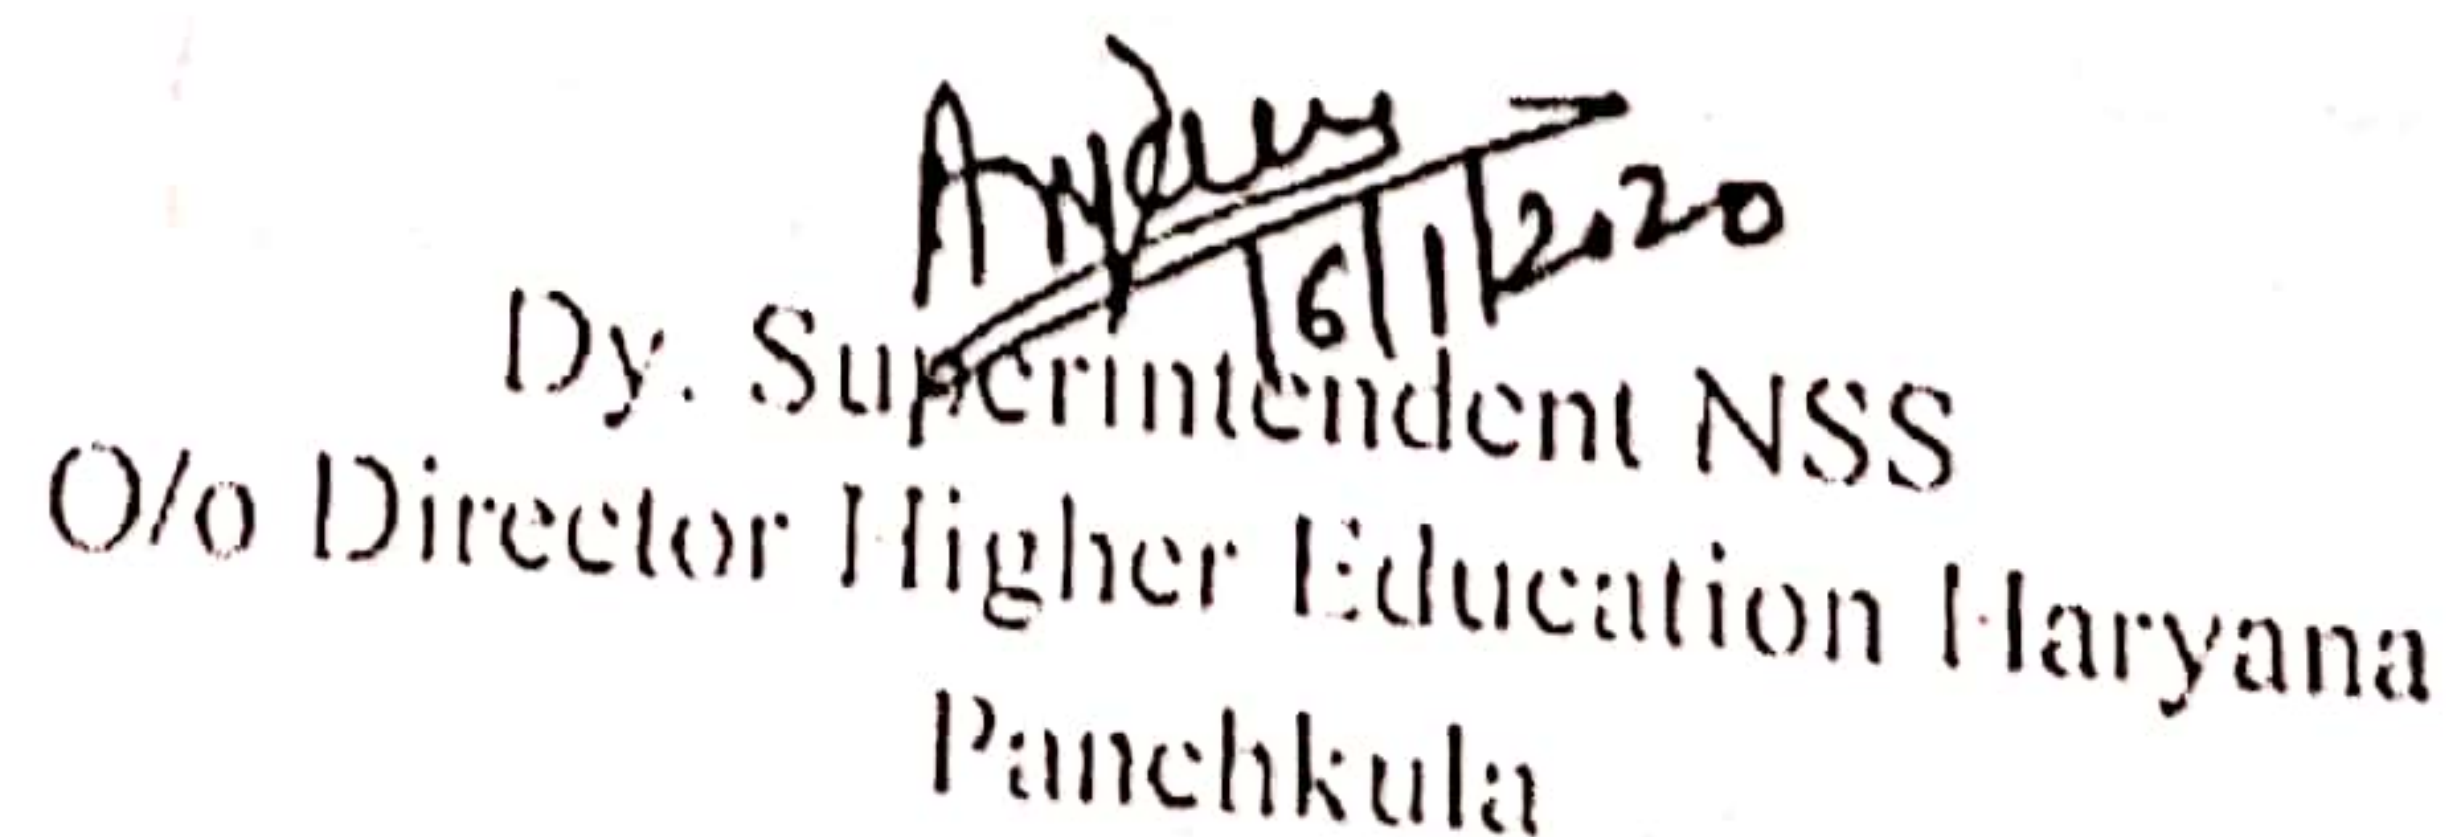 16/1/2020
Dy. Superintendent NSS
O/o Director Higher Education Haryana
Panchkula